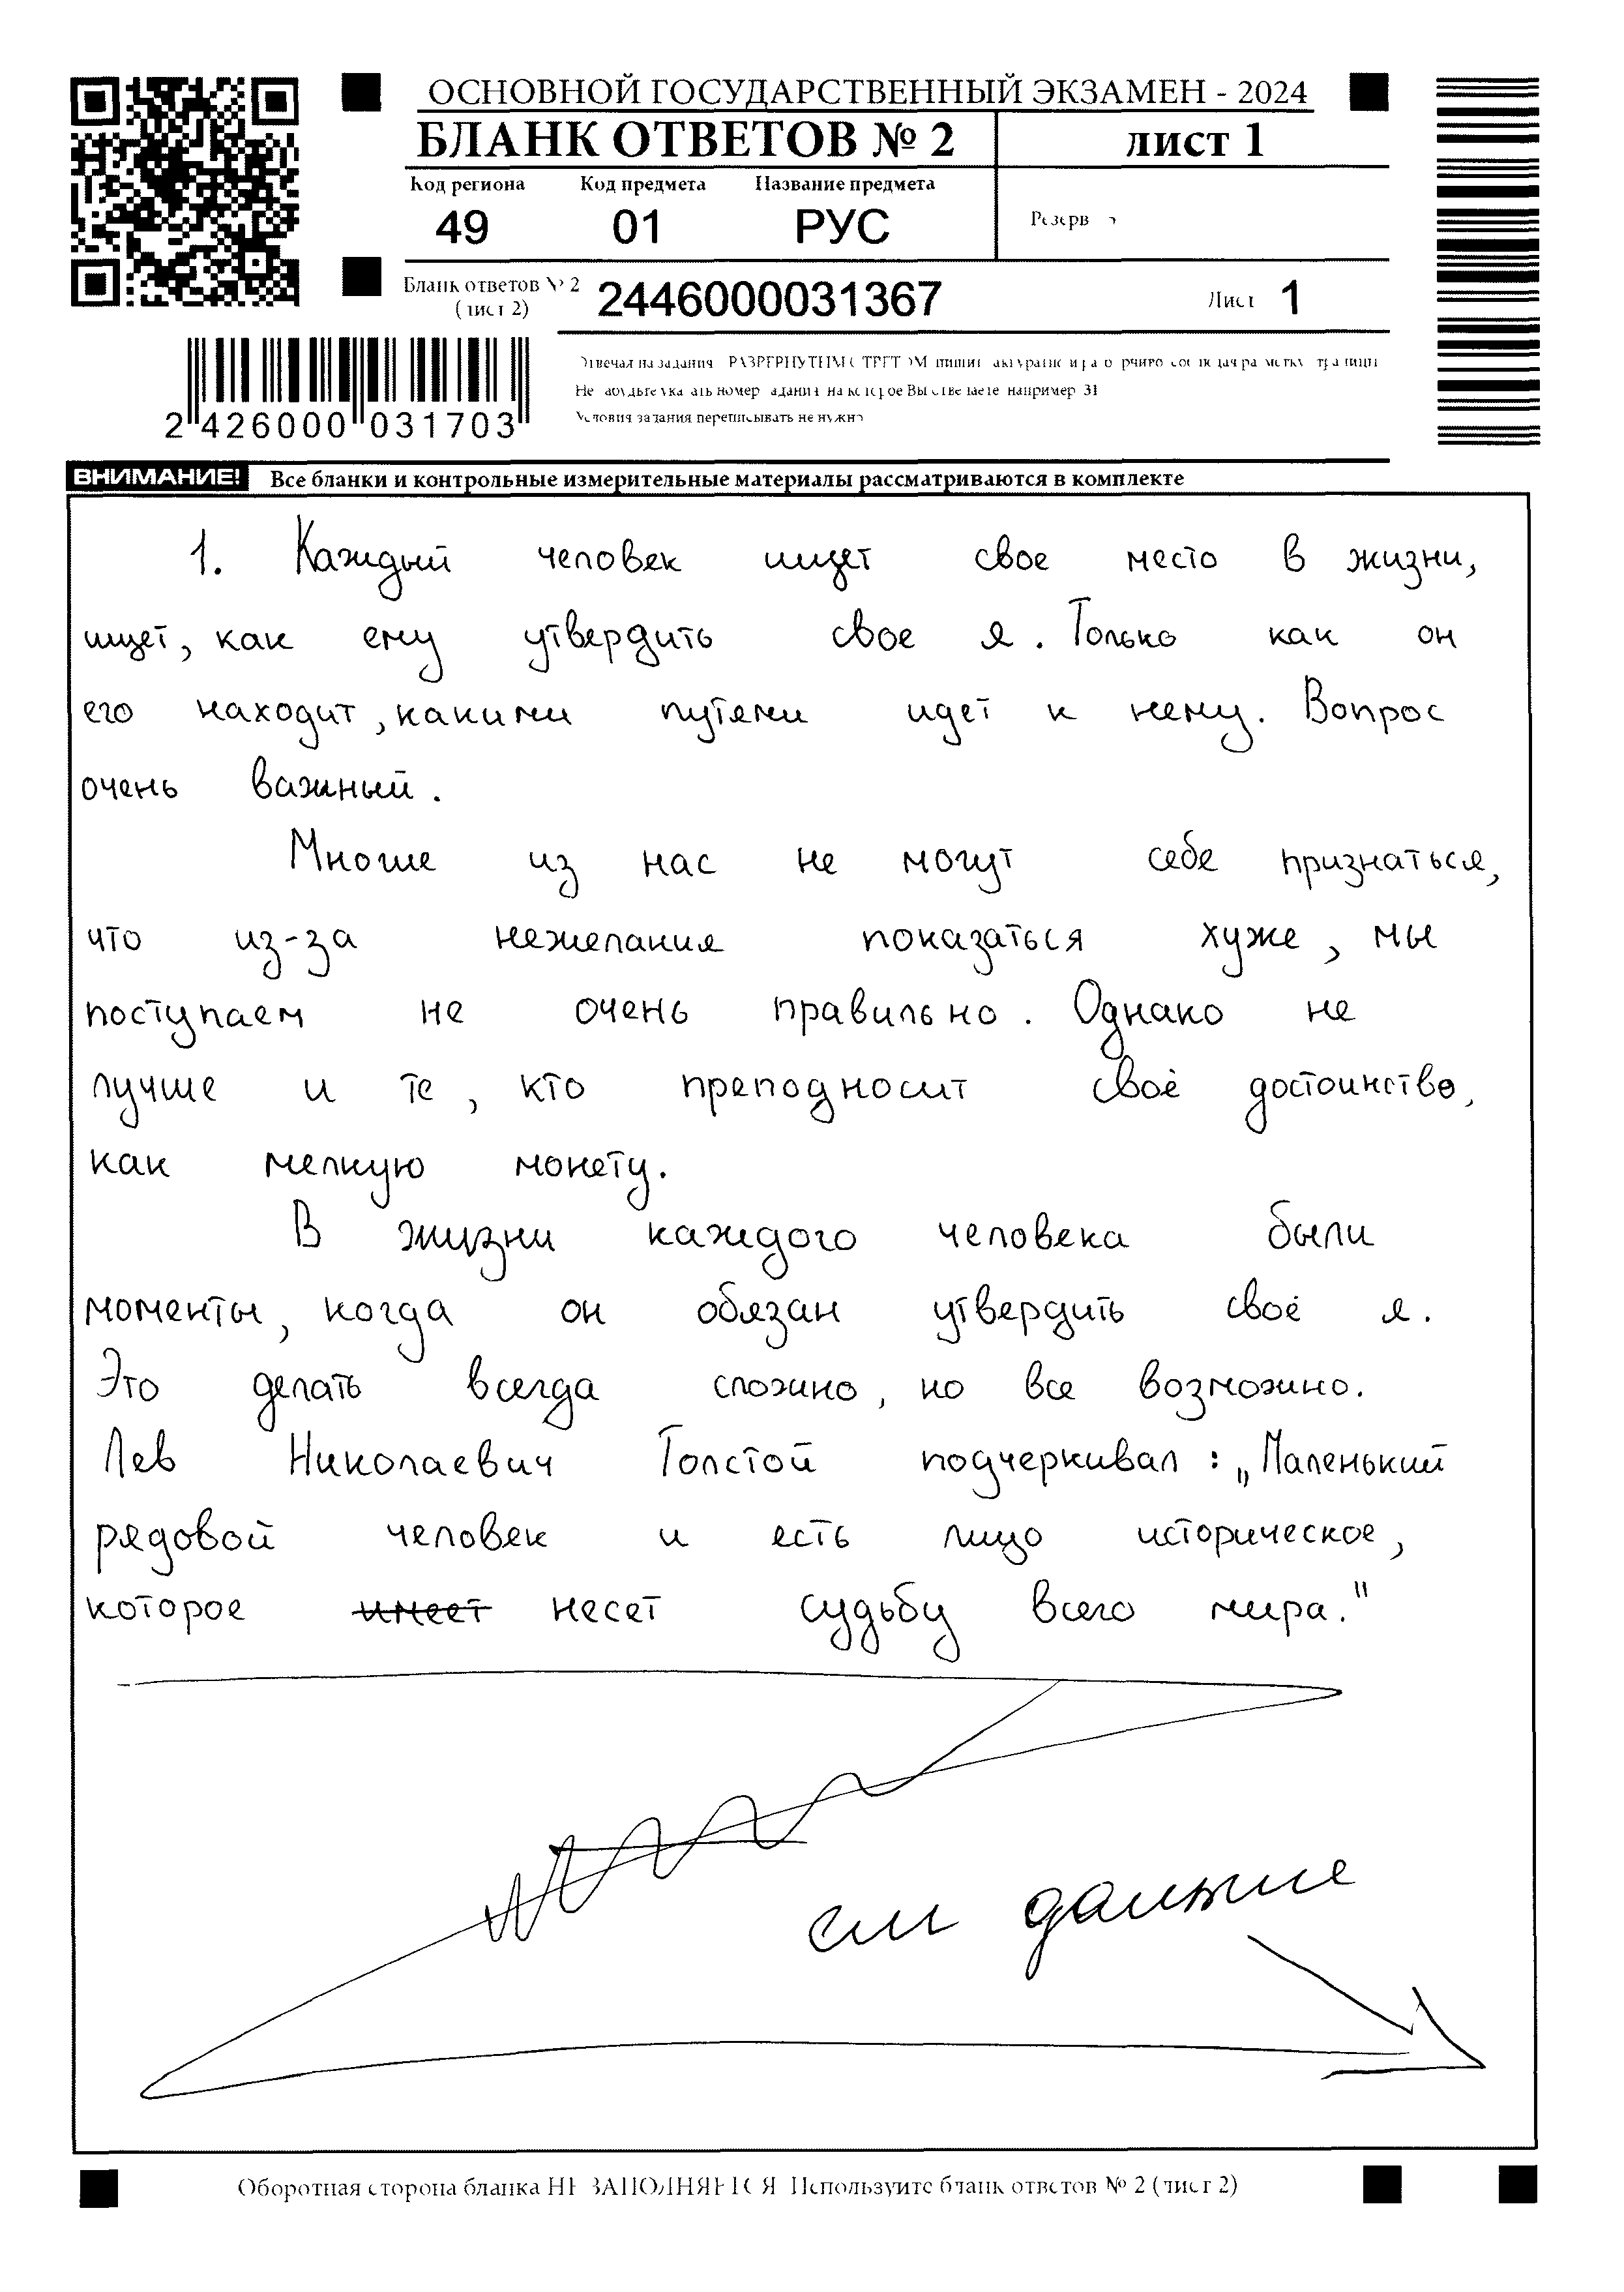 ОСНОВНОЙ ГОСУДАРСТВЕННЫЙ ЭКЗАМЕН - 2024
БЛАНК ОТВЕТОВ № 2 лист 1
Код региона Код предмета Название предмета
49 01 РУС Резерв
Бланк ответов № 2 (лист 2) 2446000031367 Лист 1
2 426000 031703
Условия задания переписывать не нужно
ВНИМАНИЕ! Все бланки и контрольные измерительные материалы рассматриваются в комплекте
1. Каждый человек ищет свое место в жизни,
ищет, как ему утвердить свое я. Только как он
его находит, какими путями идет к нему. Вопрос
очень важный.
Многие из нас не могут себе признаться,
что из-за нежелания показаться хуже, мы
поступаем не очень правильно. Однако не
лучше и те, кто преподносит своё достоинство,
как мелкую монету.
В жизни каждого человека были
моменты, когда он обязан утвердить своё я.
Это делать всегда сложно, но все возможно.
Лев Николаевич Толстой подчеркивал: „Маленький
рядовой человек и есть лицо историческое,
которое имеет несет судьбу всего мира."
см дальше
Оборотная сторона бланка НЕ ЗАПОЛНЯЕТСЯ Используйте бланк ответов № 2 (лист 2)